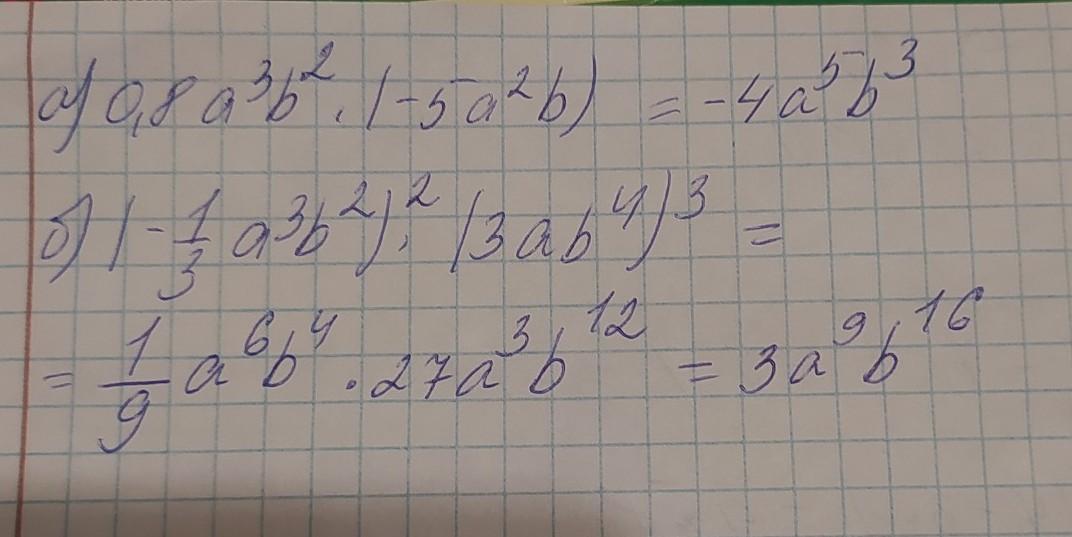 а) 0,8a³b² · (-5a²b) = -4a⁵b³
б) (-1/3 a³b²)² · (3ab⁴)³ =
= 1/9 a⁶b⁴ · 27a³b¹² = 3a⁹b¹⁶